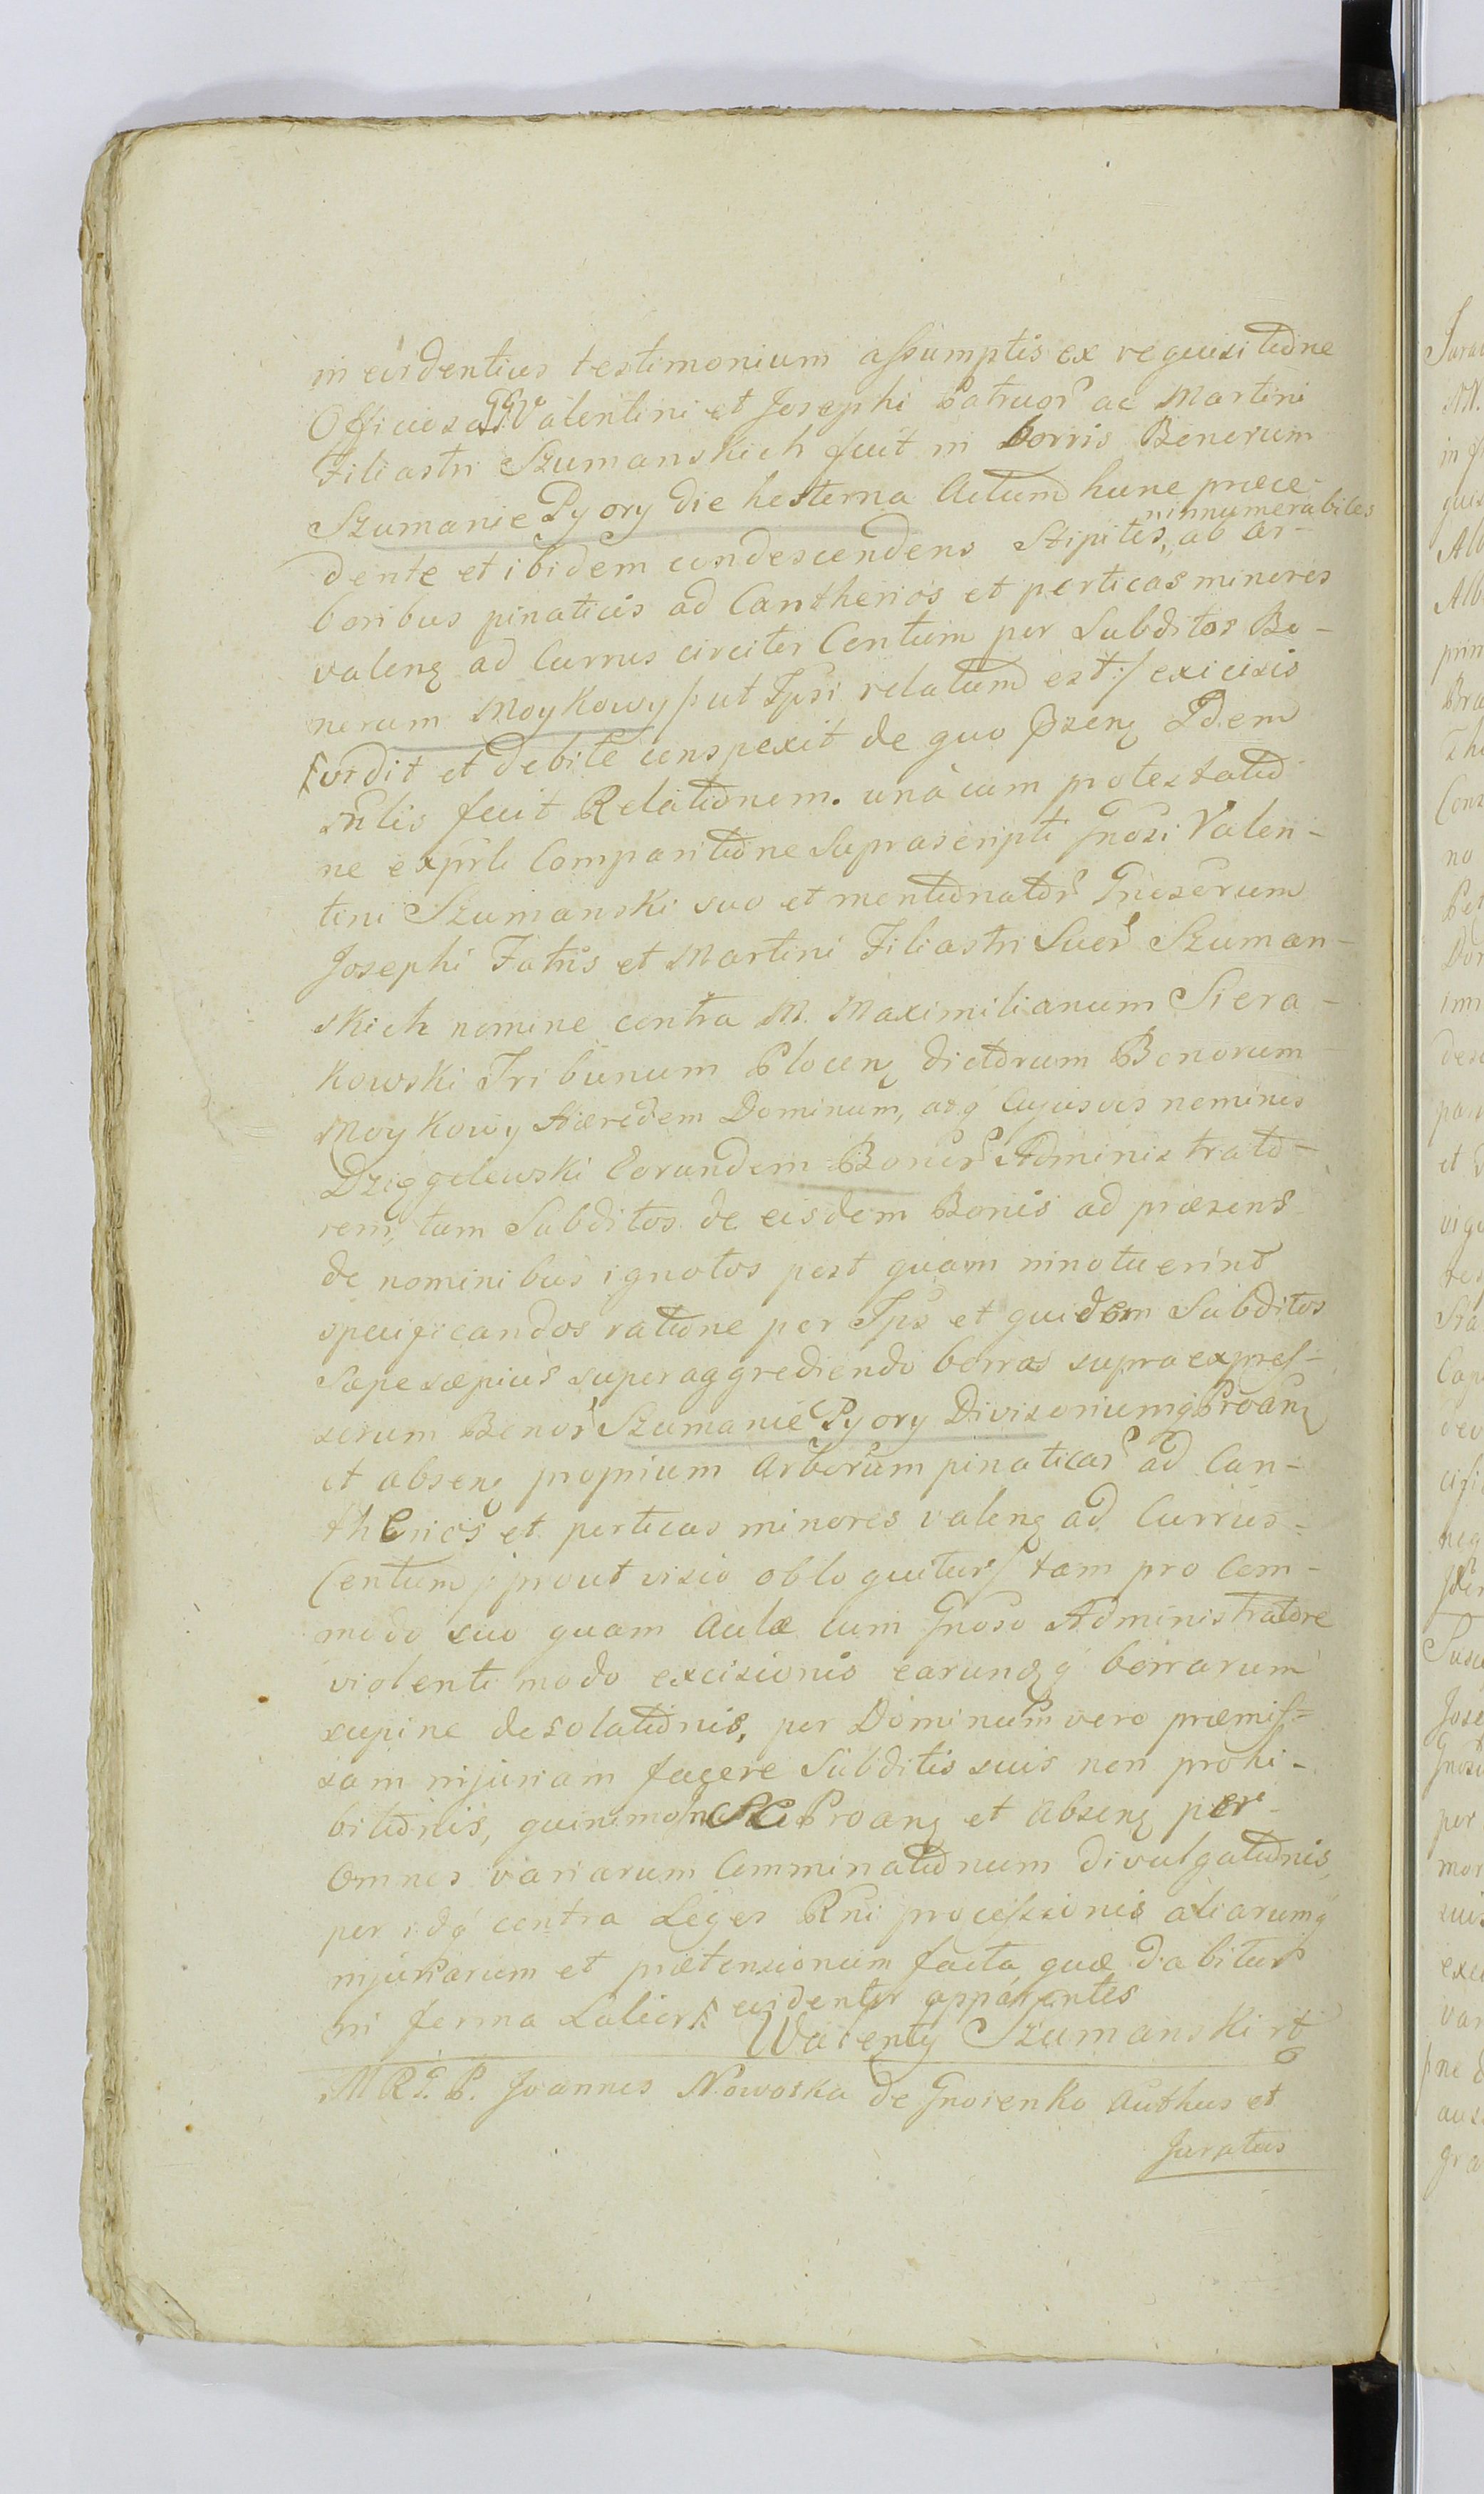 in evidentius testimonium assumptis ex requisitione
Officiosa GG. Valentini et Josephi Patruor ac Martini
Filiastri Szumanskich fuit in borris Bonorum
Szumanie Pyory die hesterna Actum hunc praece-
dente et ibidem condescendens Stipites innumerabiles ab Ar-
boribus pinaticis ad Cantherios et perticas minores
valenz ad Currus circiter Centum per Subditos Bo-
norum Moykowy /: ut Ipsi relatum est :/ exicisis
vidit et debite conspexit de quo Pszenz Idem
snlis fecit Relationem. una cum protestatio
ne exprli Comparitione Suprascripti Gnosi Valen-
tini Szumanski suo et mentionator Gnesorum
Josephi Fatris et Martini Filiastri Suor Szuman-
skich nomine contra M. Maximilianum Siera-
kowski Tribunum Plocenz dictorum Bonorum
Moykowy Haeredem Dominum, atq Cujusvis nominis
Dzięgelewski Eorundem Bonor Administrato-
rem, tum Subditos de eisdem Bonis ad praesens
de nominibus ignotos post quam innotuerint
specificandos ratione per Ips et quidem Subditos
Saepe saepius superaggrediendo borras supra expres-
sorum Bonor Szumanie Pyory Divisoriumq Proanz
et absenz proprium Arborum pinaticar ad Can-
therios et perticas minores valenz ad Currus
Centum /: prout visio obloquitur :/ tam pro Com-
modo suo quam Aulae cum Gnoso Administratore
violenti modo excisionis earundq borrarum
supine desolationis, per Dominum vero praemis-
sam injuriam facere Subditis suis non prohi-
bitionis, quinimo Proanz et Absenz per
Omnes variarum Comminationum divulgationis,
per idq contra Leges Rni processionis aliarumq
injuriarum et praetensionum facta quae dabitur
in forma Latiori evidenter apparentes
Walenty Szumanski
M R G. P. Joannes Nowoska de Gnosenko Authus et
Juratus